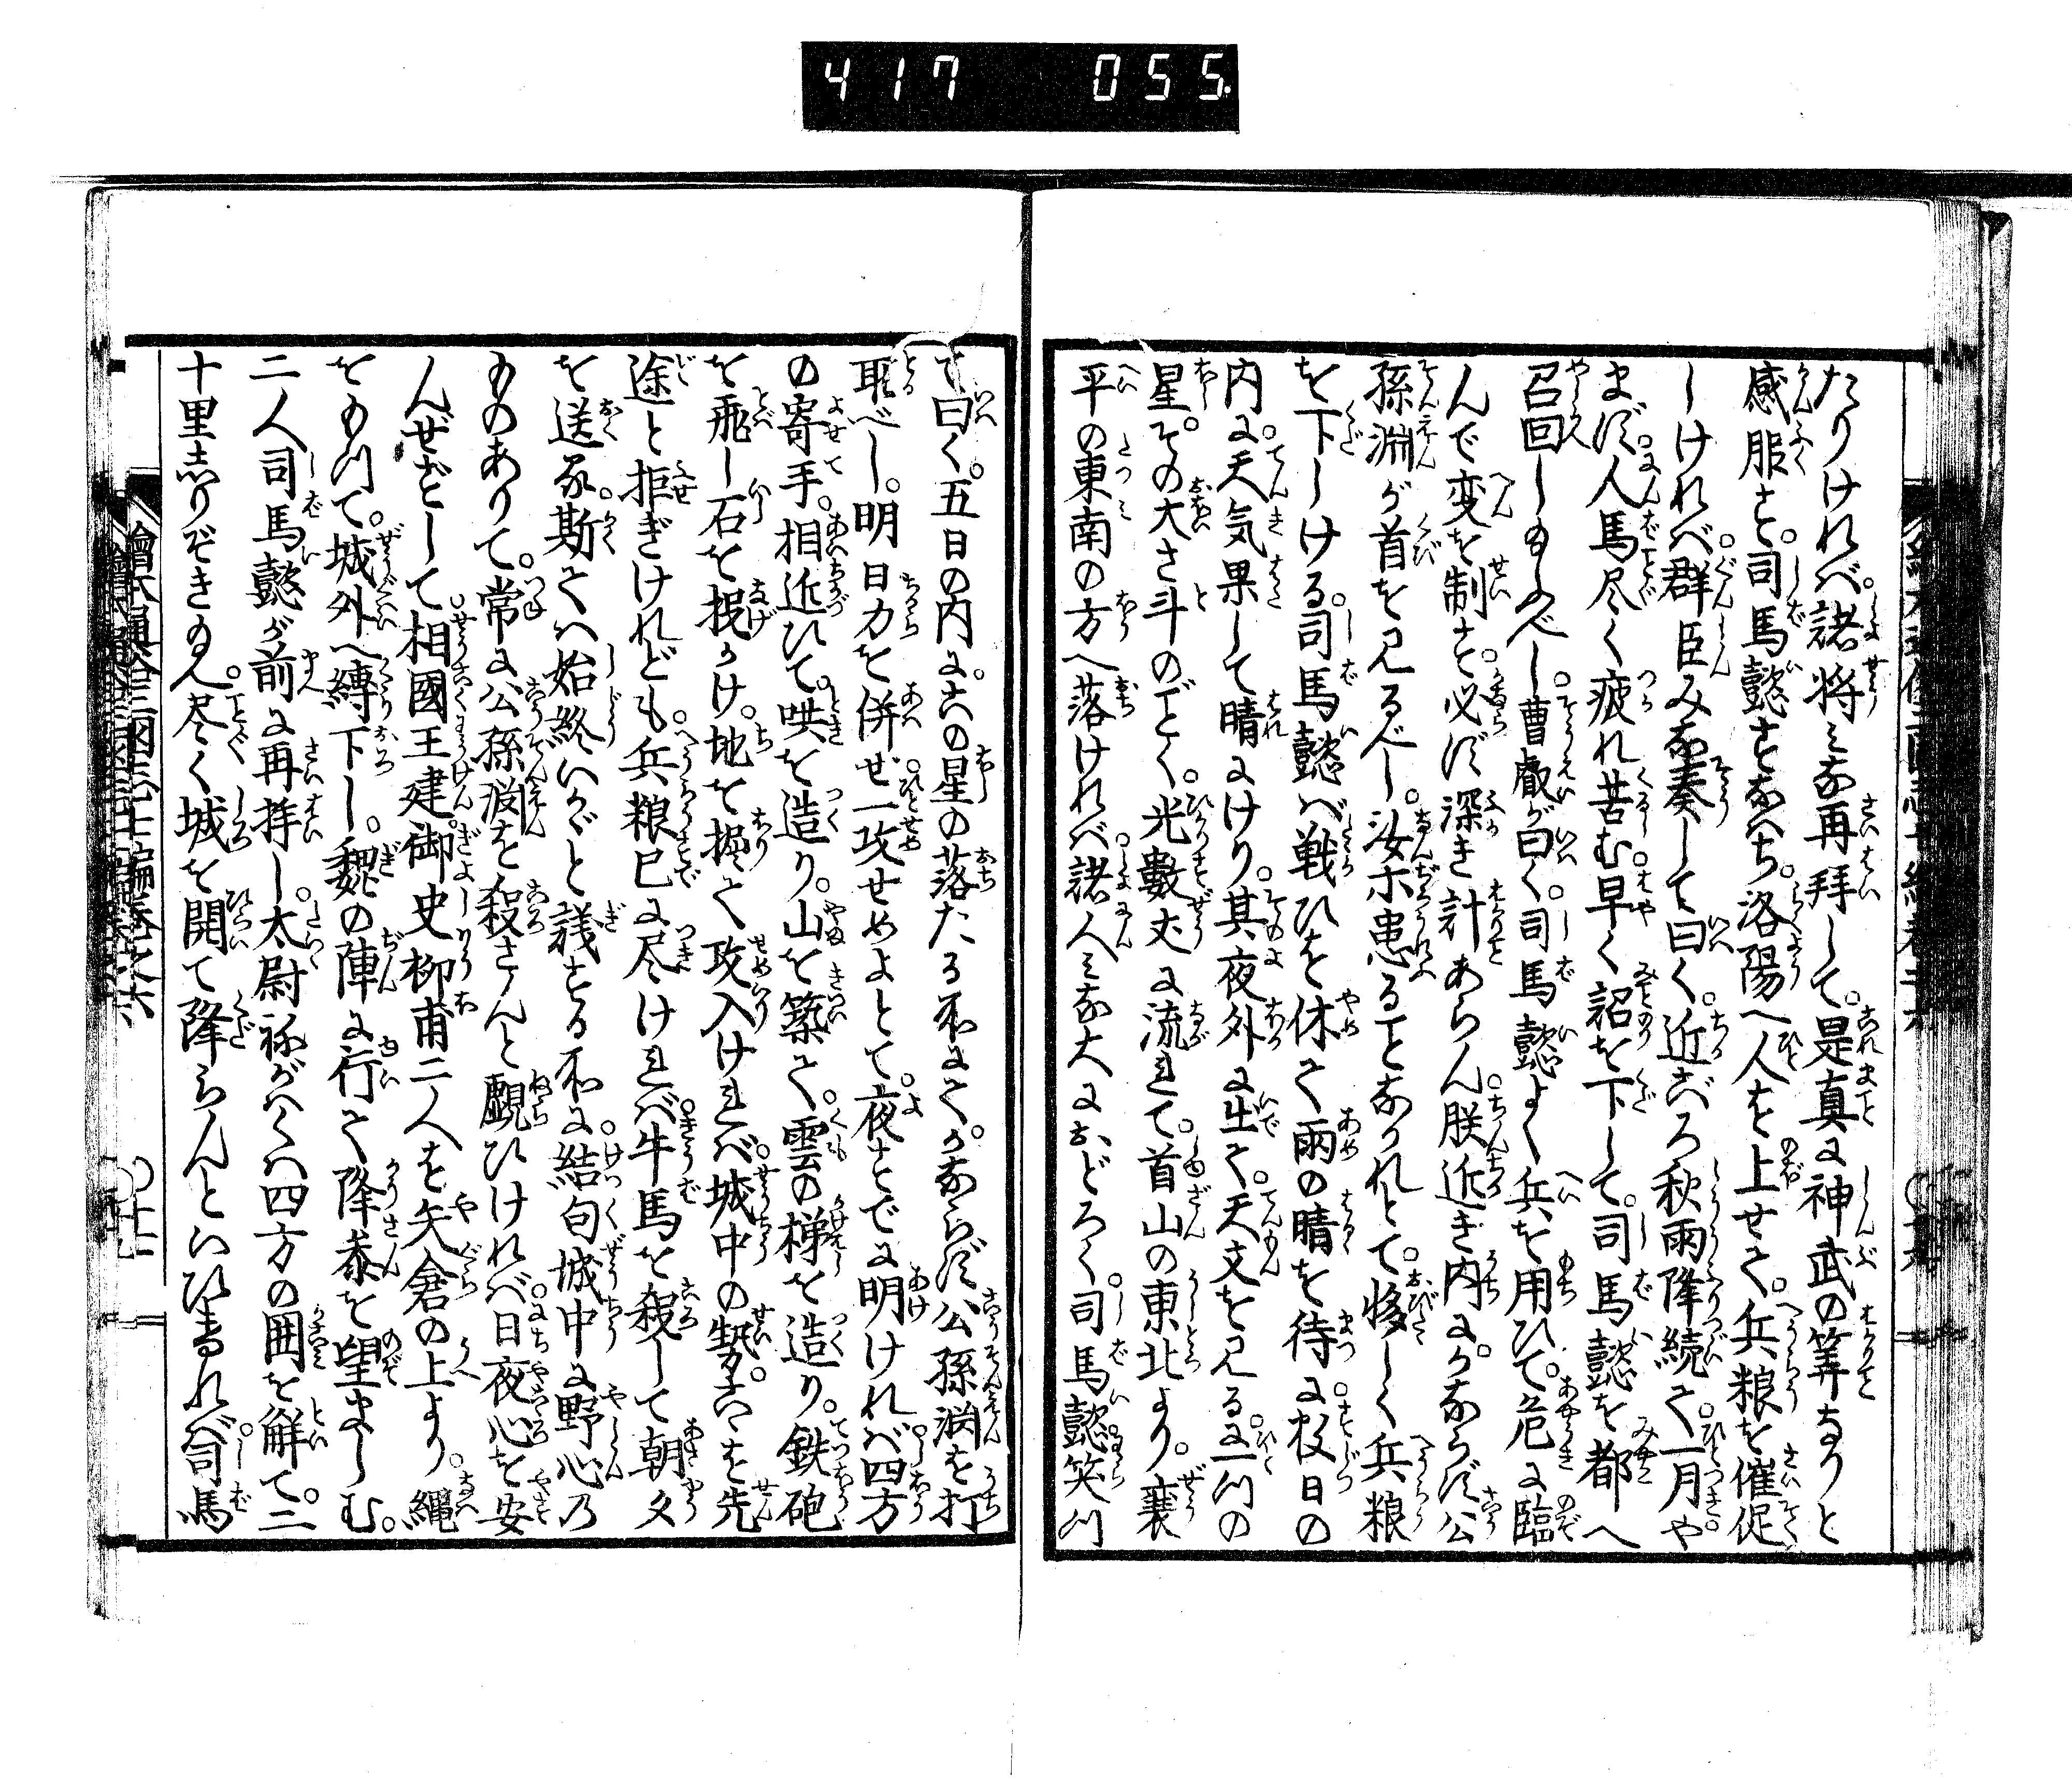 417 055.
たりければ。諸将みな再拝して。是真に神武の筭なりと
感服す。司馬懿すなはち。洛陽へ人を上せて。兵粮を催促
しければ。群臣みな奏して曰く。近ごろ秋雨降続て。一月や
まず。人馬尽く疲れ苦む。早く詔を下して。司馬懿を都へ
召回し玉ふべし。曹叡が曰く。司馬懿よく兵を用ひて。危に臨
んで変を制す。必ず深き計あらん。朕近き内に。かならず公
孫淵が首を見るべし。汝ホ患ることなかれとて。夥しく兵粮
を下しける。司馬懿ば戦ひを休て雨の晴を待に。数日の
内に。天気果して晴にけり。其夜外に出て。天文を見るに。一ツの
星。その大さ斗のごとく。光數丈に流れて。首山の東北より。襄
平の東南の方へ落ければ。諸人みな大におどろく。司馬懿笑ツ
て曰く。五日の内に。六の星の落たる所にて。かならず公孫淵を打
取べし。明日力を併せ一攻せめよとて。夜すでに明ければ。四方
の寄手。相近ひて。哄を造り。山を築て。雲の梯を造り。鉄砲
を飛し石を投かけ。地を掘て攻入ければ。城中の勢。六を先
途と拒ぎけれども。兵粮已に尽ければ。牛馬を殺して朝夕
を送る。斯ては始終いかゞと議する所に。結句城中に野心の
ものありて。常に公孫淵を殺さんと覷ひければ。日夜心を安
んぜずして。相國王建。御史柳甫二人を矢倉の上より。縄
をもつて。城外へ縛下し。魏の陣に行て降参を望ましむ。
二人司馬懿が前に再拝し。太尉ねがはくは四方の囲を解て。二
十里しりぞき玉へ。尽く城を開て降らんといひければ。司馬
繪本通俗三國志七編巻之六